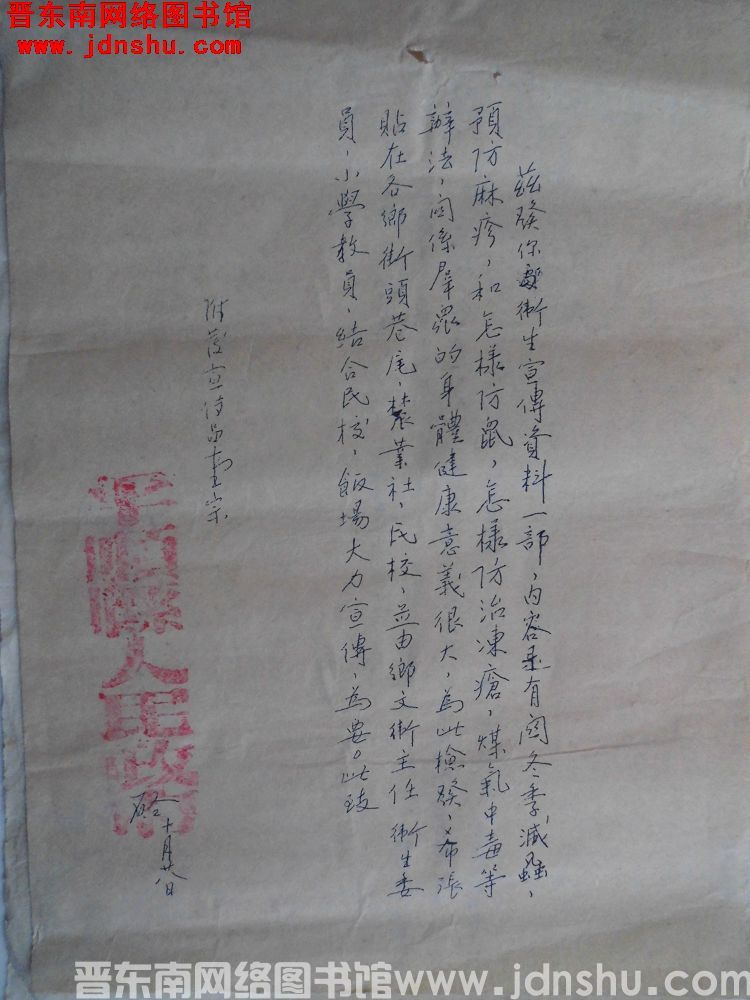 晋东南网络图书馆
www.jdnshu.com
茲發你鄉衛生宣傳資料一部，內容是有関冬季滅蟲、
預防麻疹，和怎樣防鼠，怎樣防治凍瘡，煤氣中毒等
辦法，関係羣衆的身體健康意義很大，為此檢發，希張
貼在各鄉街頭巷尾，農業社，民校，並由鄉文衛主任衛生委
員，小學教員，結合民校，飯場大力宣傳，為要。此致
附發宣传品壹宗
平順縣人民政府
十月廿八日
晋东南网络图书馆www.jdnshu.com